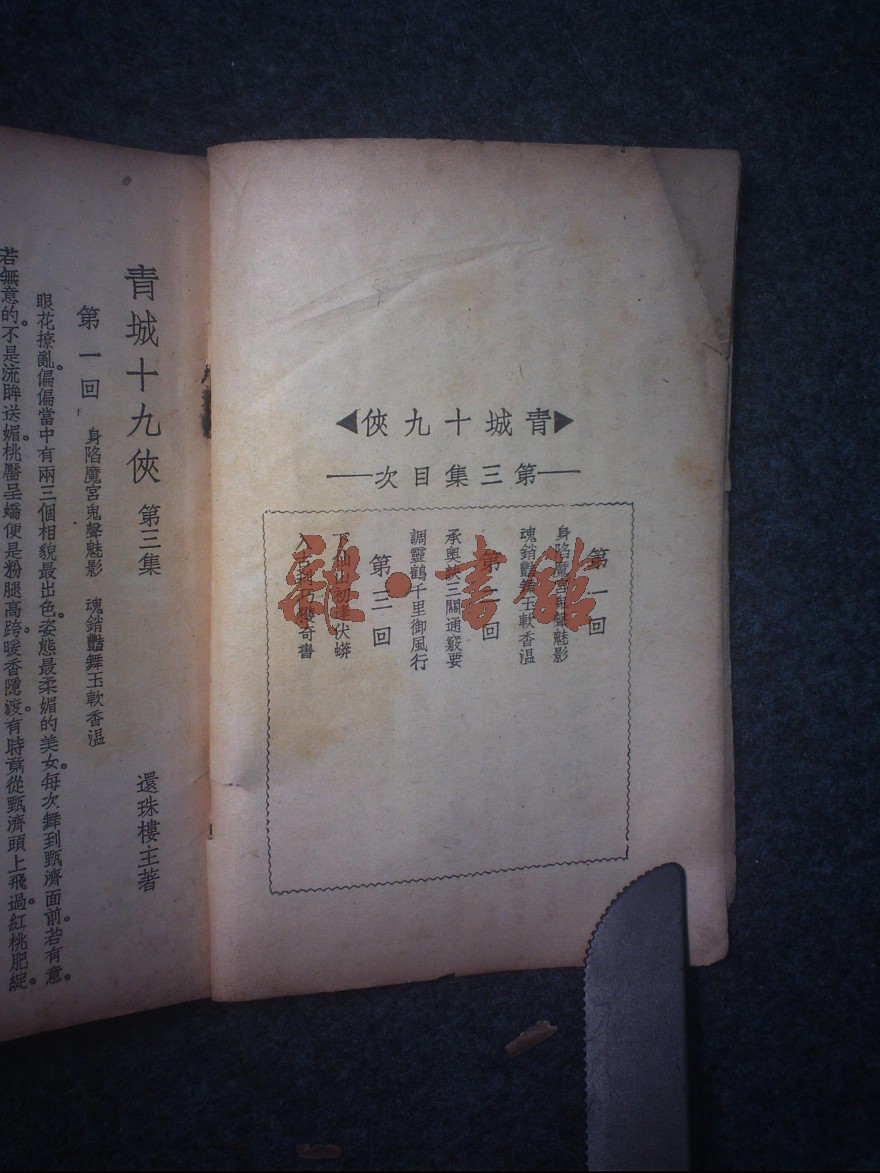 青城十九俠
第三集目次
第一回
身陷魔宮鬼聲魅影
魂銷豔舞玉軟香溫
第二回
承奧訣三關通竅要
調靈鶴千里御風行
第三回
下仙山初逢伏蟒
入古洞巧獲奇書
雜·書館
青城十九俠 第三集 還珠樓主著
第一回 身陷魔宮鬼聲魅影 魂銷豔舞玉軟香溫
眼花撩亂。偏偏當中有兩三個相貌最出色。姿態最柔媚的美女。每次舞到甄濟面前。若有意。
若無意的。不是流眸送媚。桃靨呈嬌。便是粉腿高跨。暖香隱渡。有時竟從甄濟頭上飛過。紅桃肥綻。